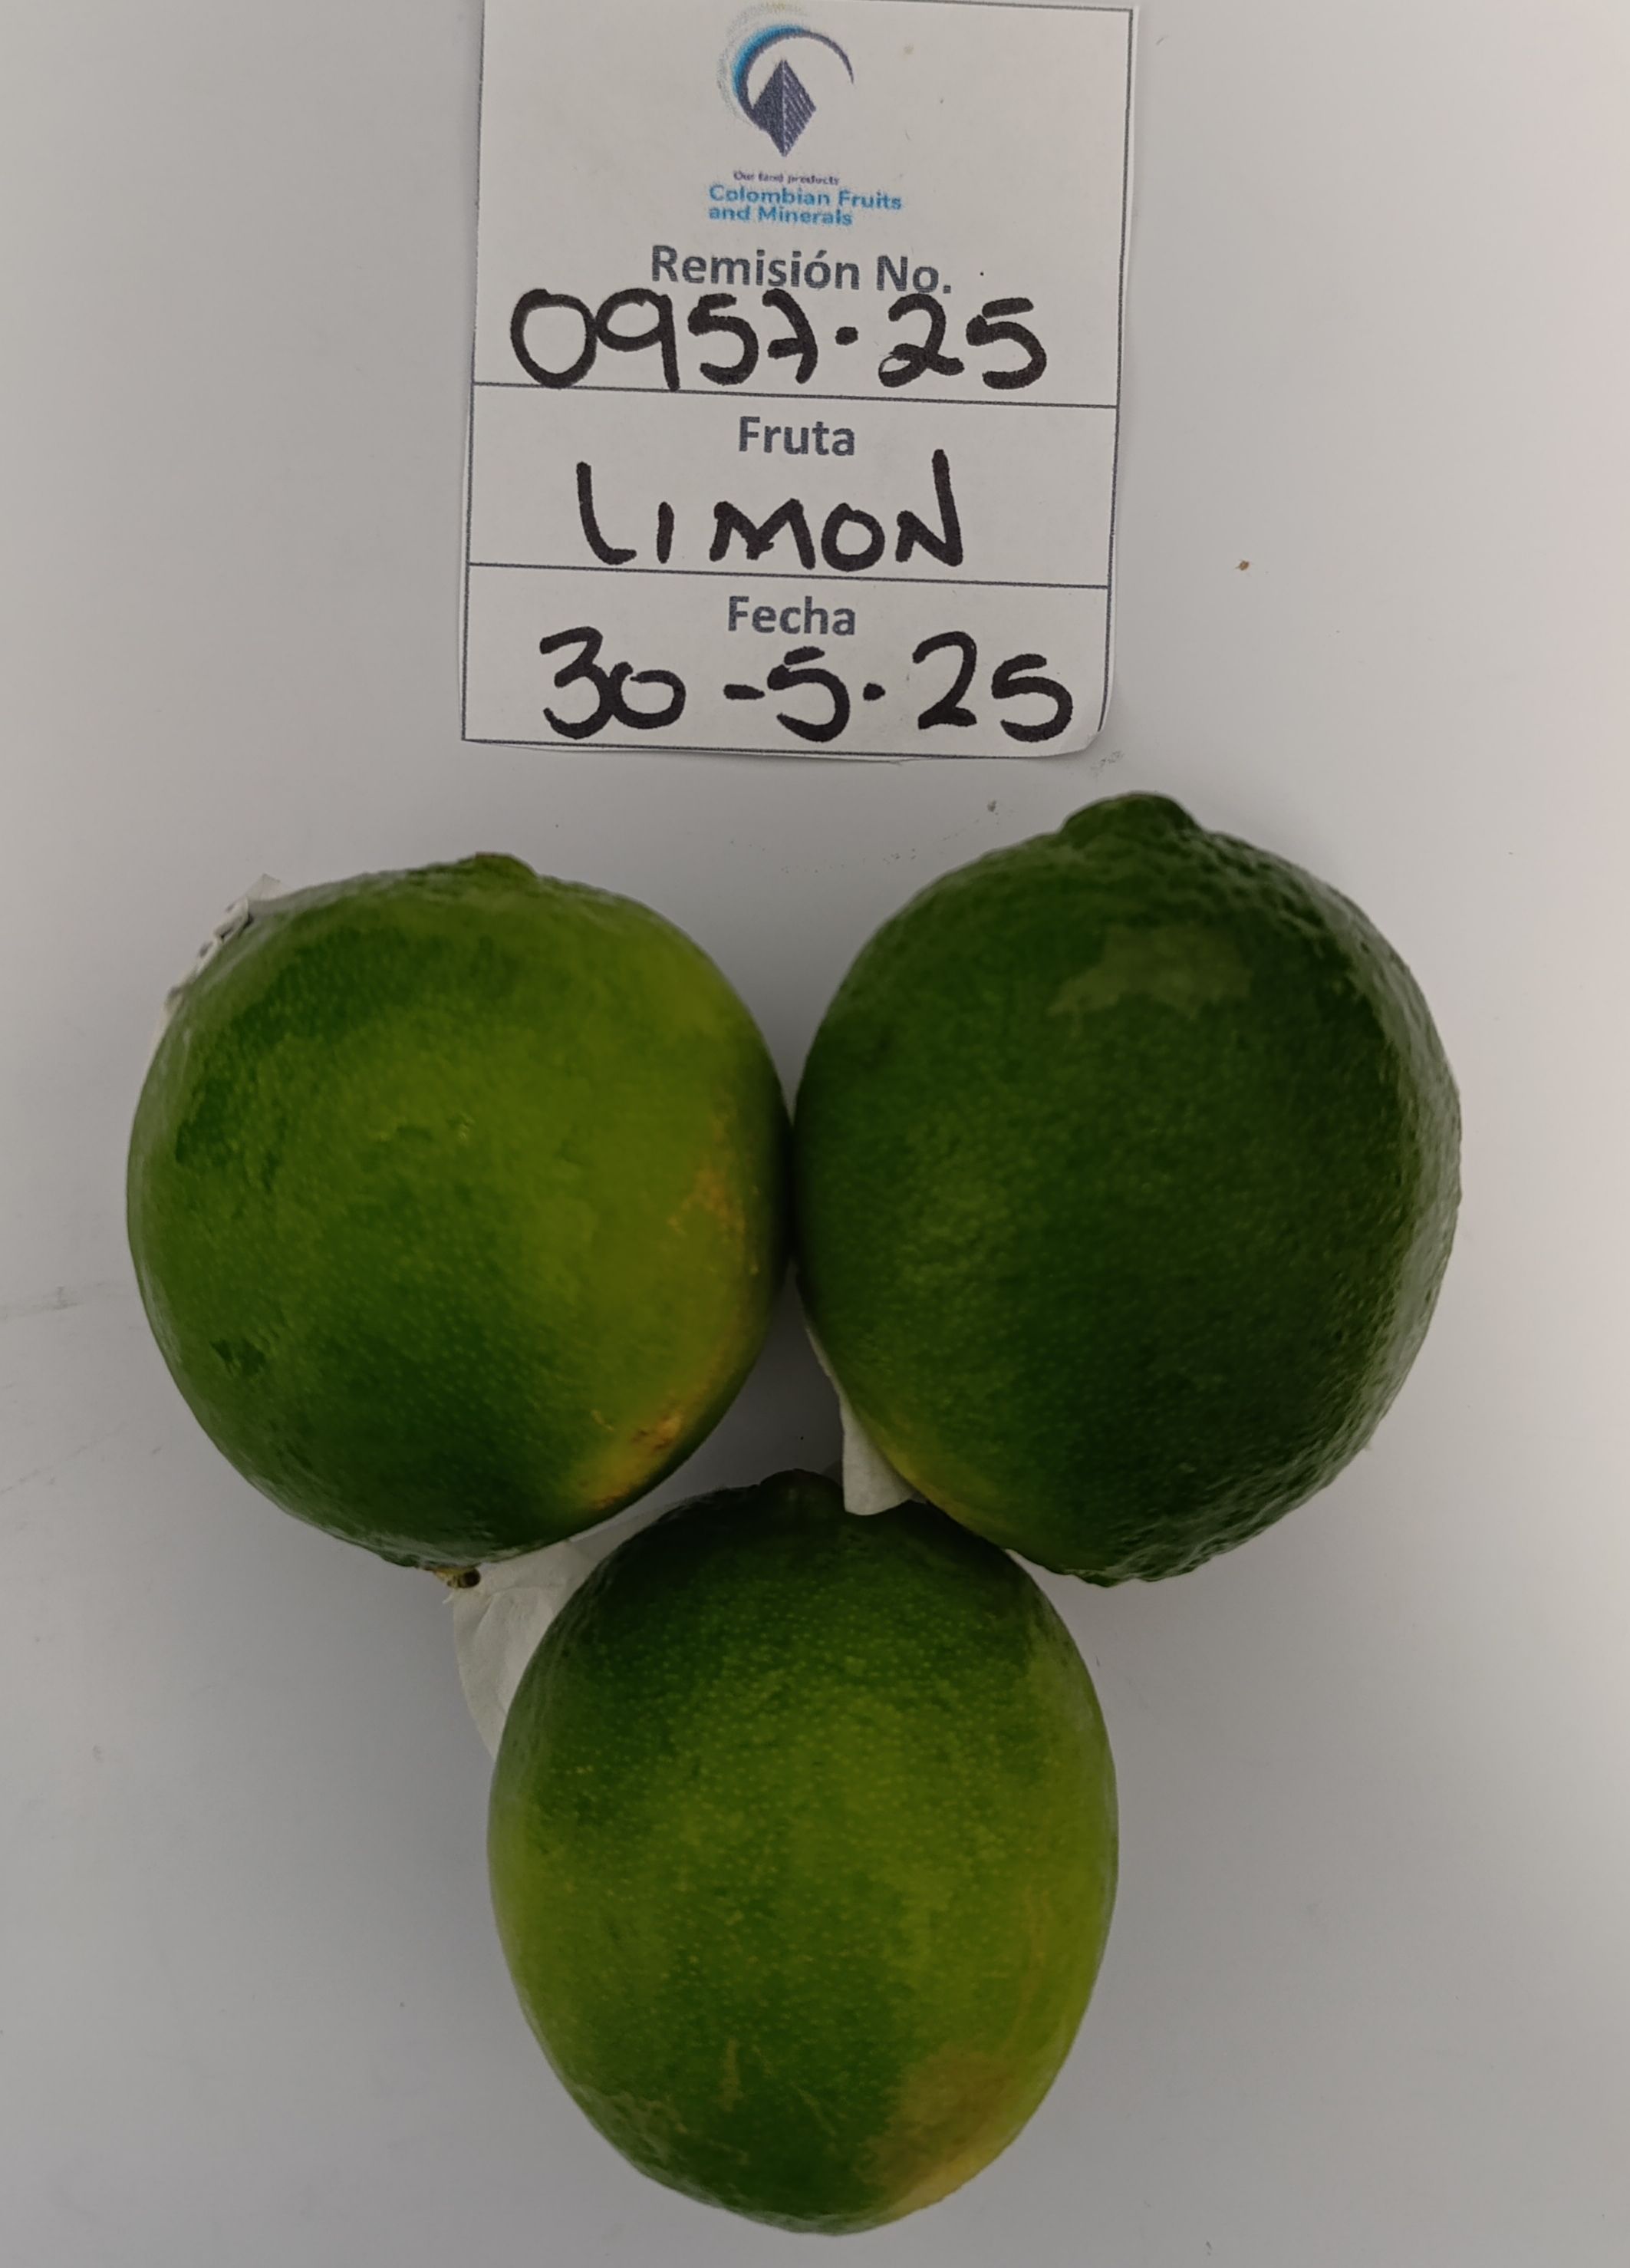 Our land products
Colombian Fruits
and Minerals
Remisión No.
0957·25
Fruta
LIMON
Fecha
30-5·25